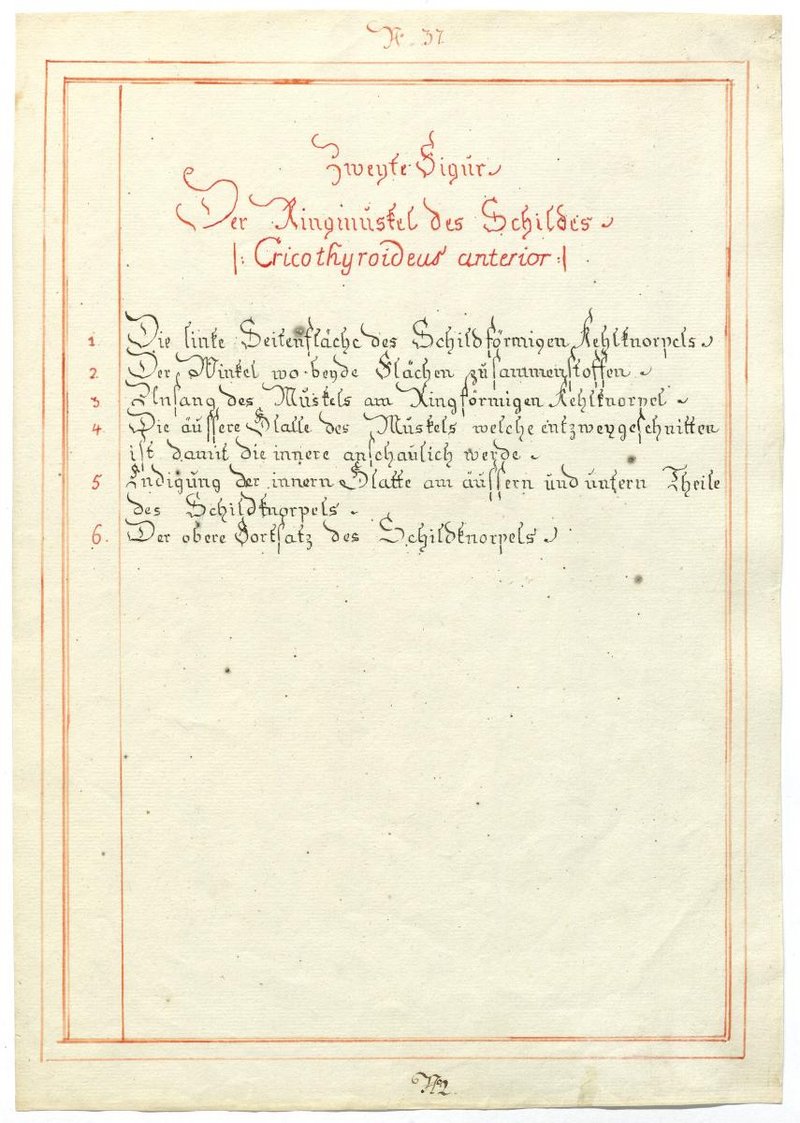 N. 37
Zweyte Figur
Der Ringmuskel des Schildes
|: Cricothyroideus anterior :|
1. Die linke Seitenfläche des Schildförmigen Kehlknorpels
2. Der Winkel wo beyde Flächen zusammenstossen
3 Anfang des Muskels am Ringförmigen Kehlknorpel
4. Die äussere Platte des Muskels welche entzweygeschnitten
ist damit die innere anschaulich werde
5 Endigung der innern Platte am äussern und untern Theile
des Schildknorpels
6. Der obere Fortsatz des Schildknorpels